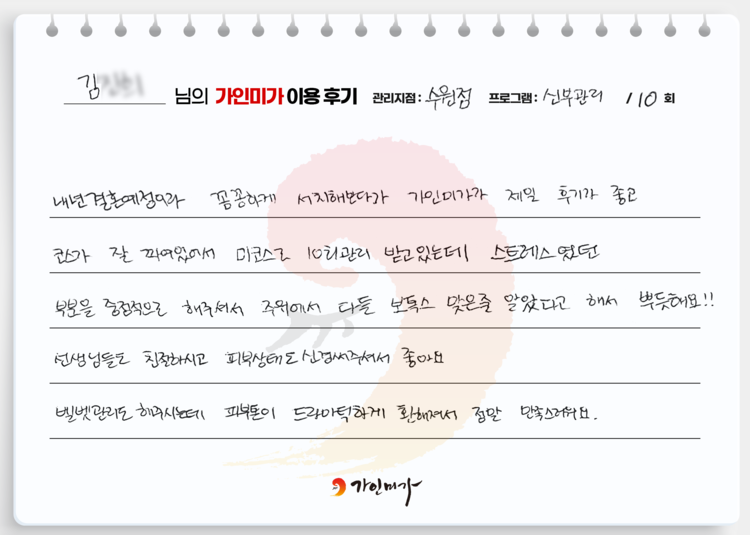 김 님의 가인미가 이용 후기 관리지점: 수원점 프로그램: 신부관리 / 10 회
내년결혼예정이라 꼼꼼하게 서치해보다가 가인미가가 제일 후기가 좋고
코스가 잘 짜여있어서 미코스로 10회관리 받고있는데 스트레스였던
부분을 중점적으로 해주셔서 주위에서 다들 보톡스 맞은줄 알았다고 해서 뿌듯해요!!
선생님들도 친절하시고 피부상태도 신경써주셔서 좋아요
벨벳관리도 해주시는데 피부톤이 드라마틱하게 환해져서 정말 만족스러워요.
가인미가